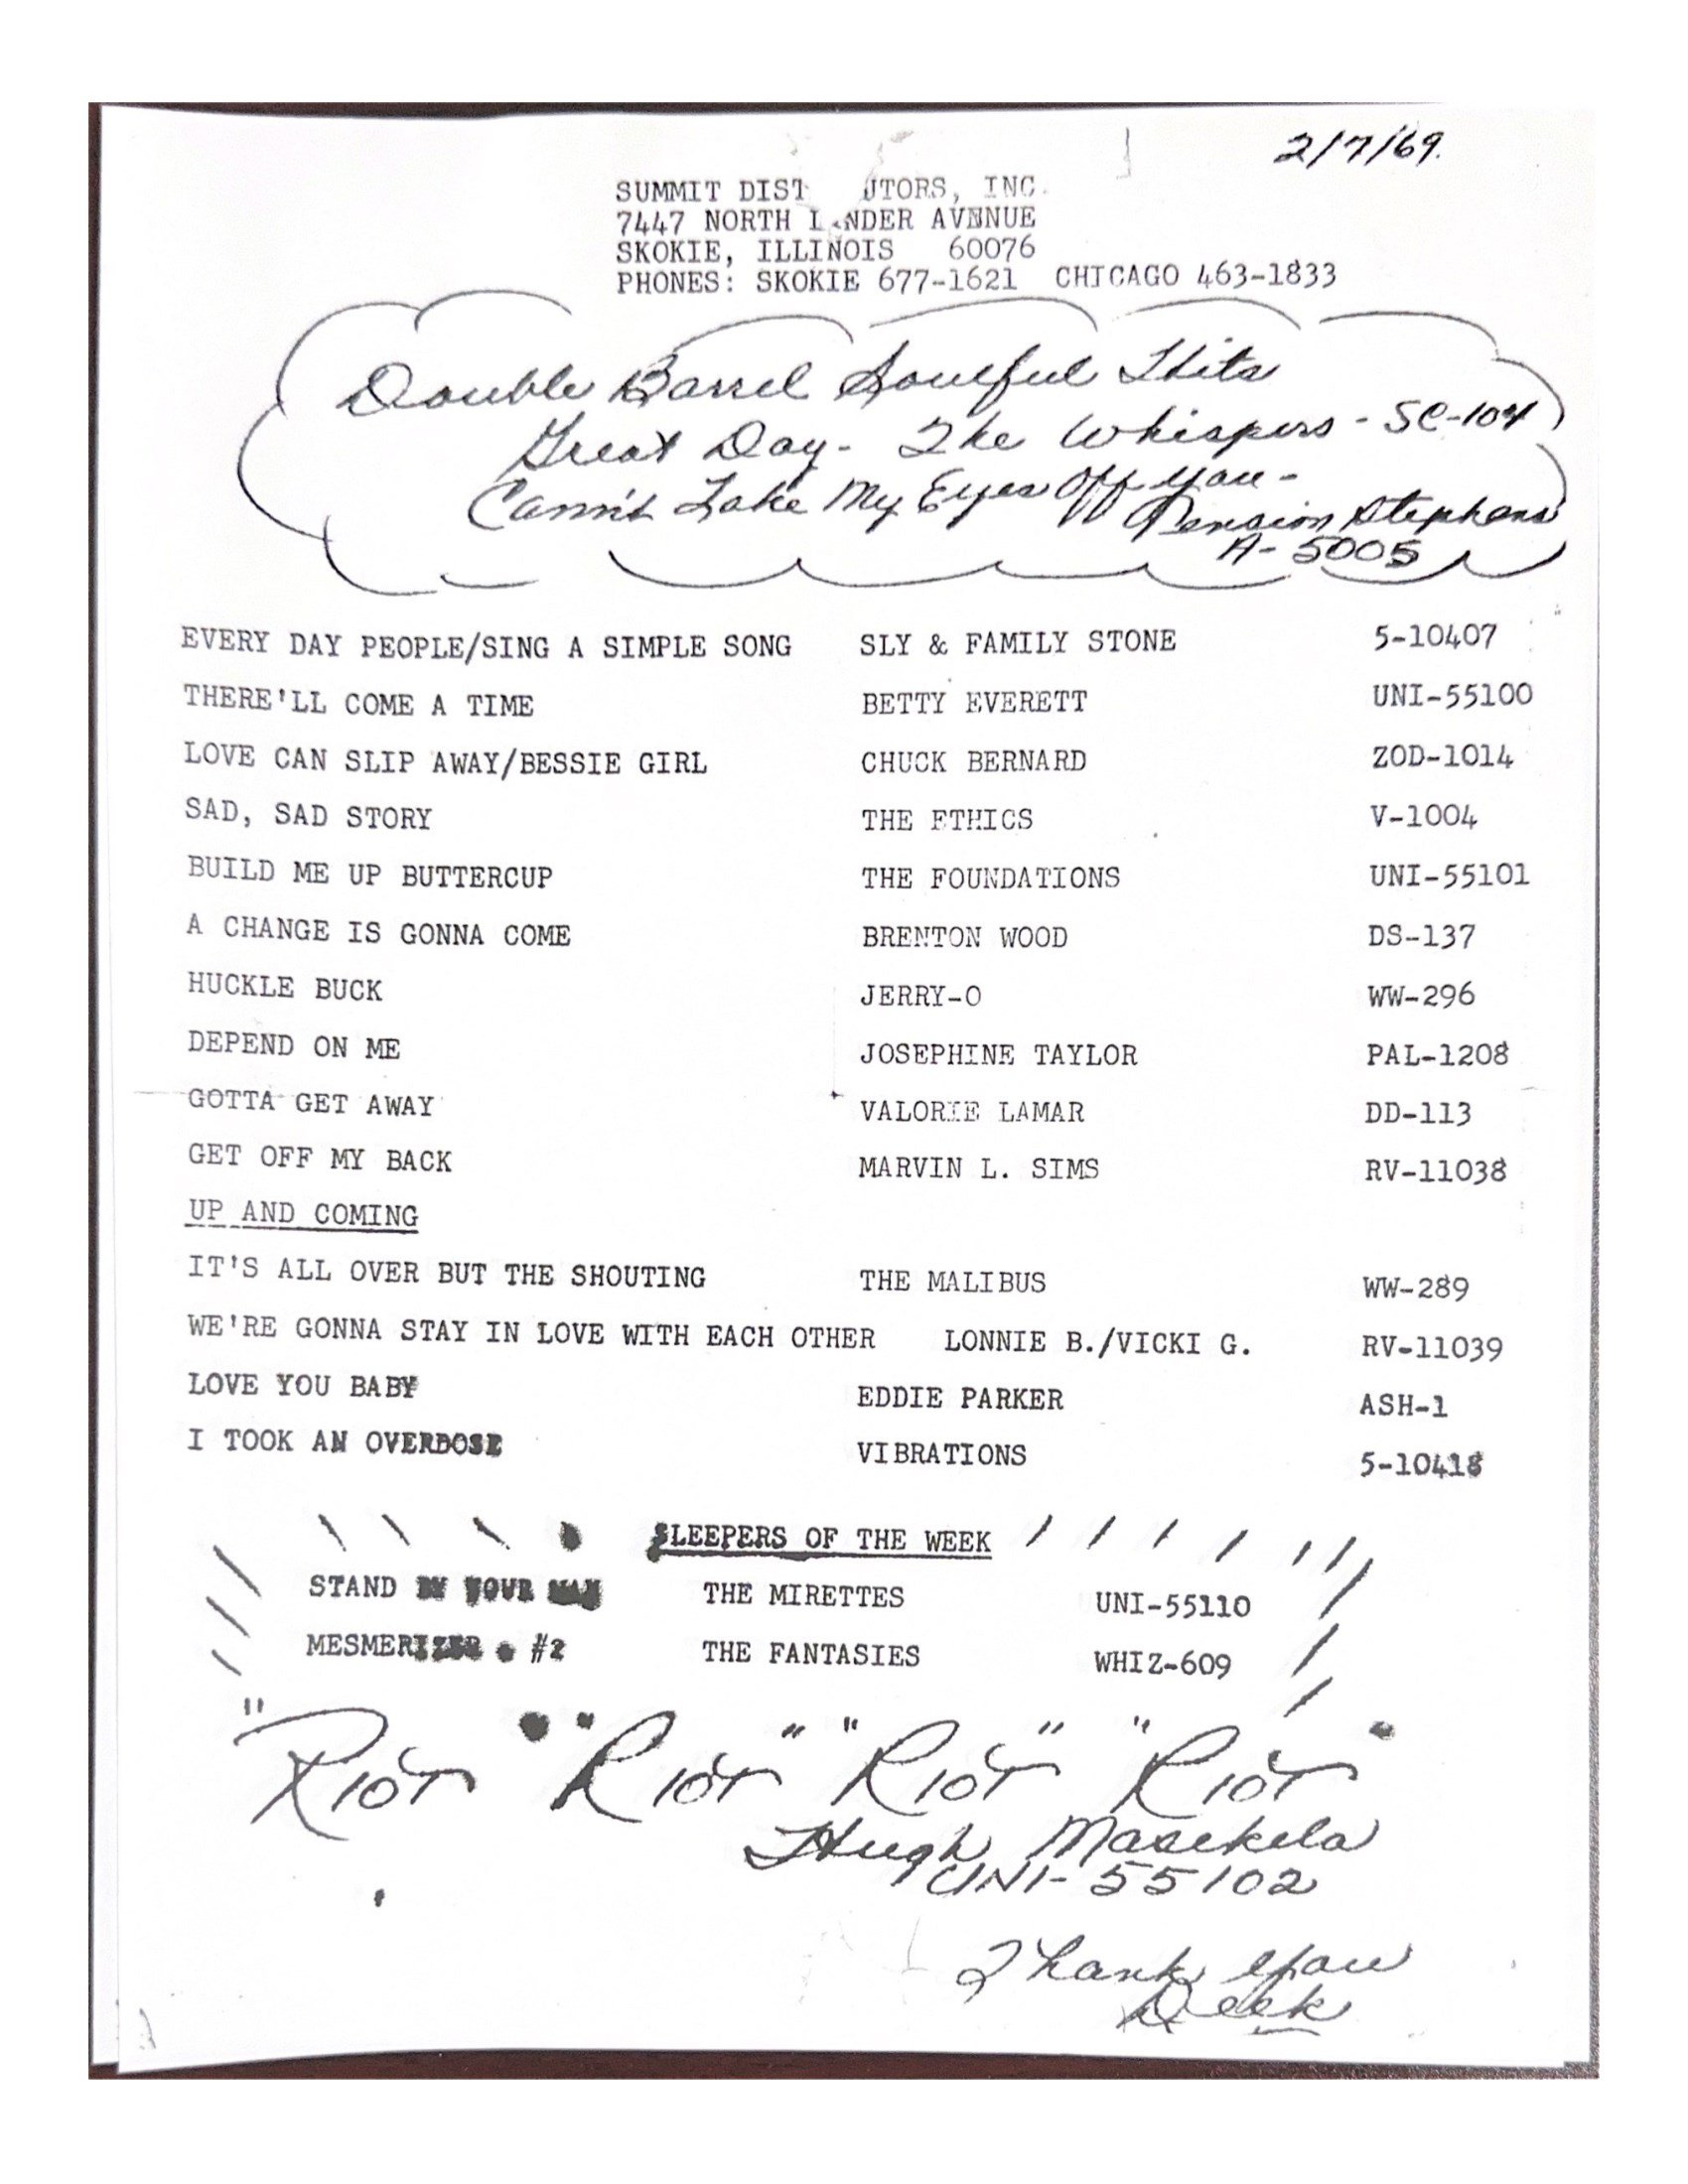 2/7/69.
SUMMIT DIST UTORS, INC.
7447 NORTH L NDER AVENUE
SKOKIE, ILLINOIS 60076
PHONES: SKOKIE 677-1621 CHICAGO 463-1833
Double Barrel Soulful Hits
Great Day - The Whispers - SC-104
Cann't Take My Eyes Off You -
Stephens
A-5005
EVERY DAY PEOPLE/SING A SIMPLE SONG SLY & FAMILY STONE 5-10407
THERE'LL COME A TIME BETTY EVERETT UNI-55100
LOVE CAN SLIP AWAY/BESSIE GIRL CHUCK BERNARD ZOD-1014
SAD, SAD STORY THE ETHICS V-1004
BUILD ME UP BUTTERCUP THE FOUNDATIONS UNI-55101
A CHANGE IS GONNA COME BRENTON WOOD DS-137
HUCKLE BUCK JERRY-O WW-296
DEPEND ON ME JOSEPHINE TAYLOR PAL-1208
GOTTA GET AWAY VALORIE LAMAR DD-113
GET OFF MY BACK MARVIN L. SIMS RV-11038
UP AND COMING
IT'S ALL OVER BUT THE SHOUTING THE MALIBUS WW-289
WE'RE GONNA STAY IN LOVE WITH EACH OTHER LONNIE B./VICKI G. RV-11039
LOVE YOU BABY EDDIE PARKER ASH-1
I TOOK AN OVERDOSE VIBRATIONS 5-10418
SLEEPERS OF THE WEEK
STAND BY YOUR MAN THE MIRETTES UNI-55110
MESMERIZER #2 THE FANTASIES WHIZ-609
"Riot" "Riot" "Riot" "Riot"
Hugh Masekela
UNI-55102
Thank You
Deek